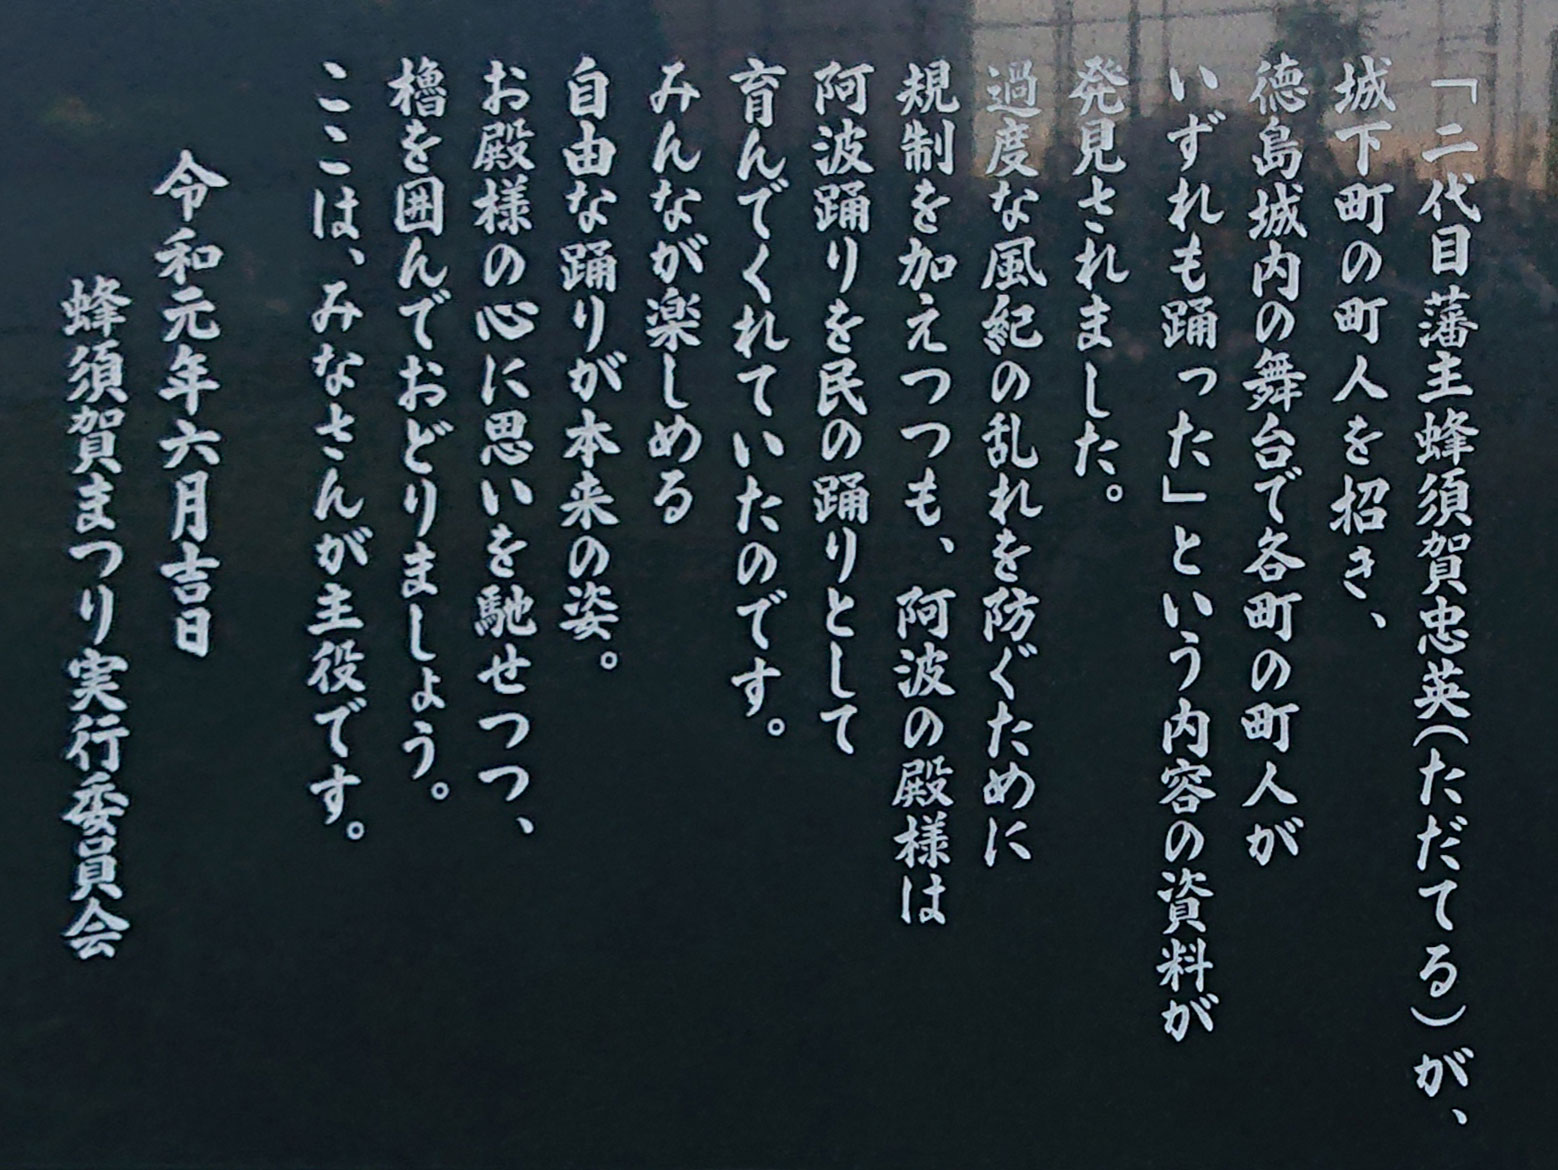 「二代目藩主蜂須賀忠英(ただてる)が、
城下町の町人を招き、
徳島城内の舞台で各町の町人が
いずれも踊った」という内容の資料が
発見されました。
過度な風紀の乱れを防ぐために
規制を加えつつも、阿波の殿様は
阿波踊りを民の踊りとして
育んでくれていたのです。
みんなが楽しめる
自由な踊りが本来の姿。
お殿様の心に思いを馳せつつ、
櫓を囲んでおどりましょう。
ここは、みなさんが主役です。
令和元年六月吉日
蜂須賀まつり実行委員会